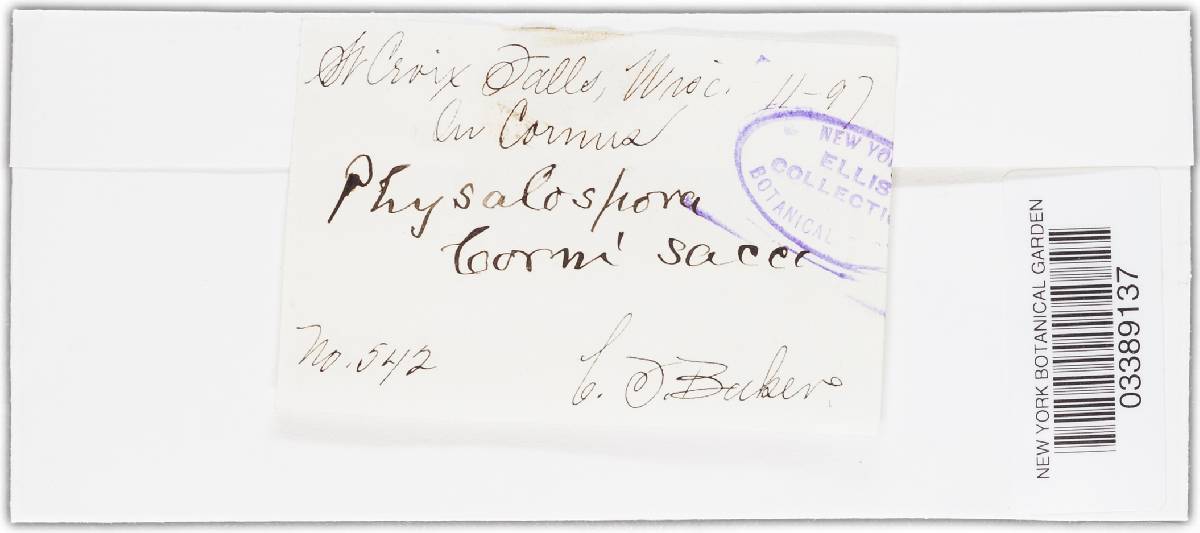 St Croix Falls, Wisc. 11-97
On Cornus
Physalospora
Corni Sacc
No. 542
C. F. Baker.
NEW YO
ELLIS
COLLECTI
BOTANICAL
NEW YORK BOTANICAL GARDEN
03389137